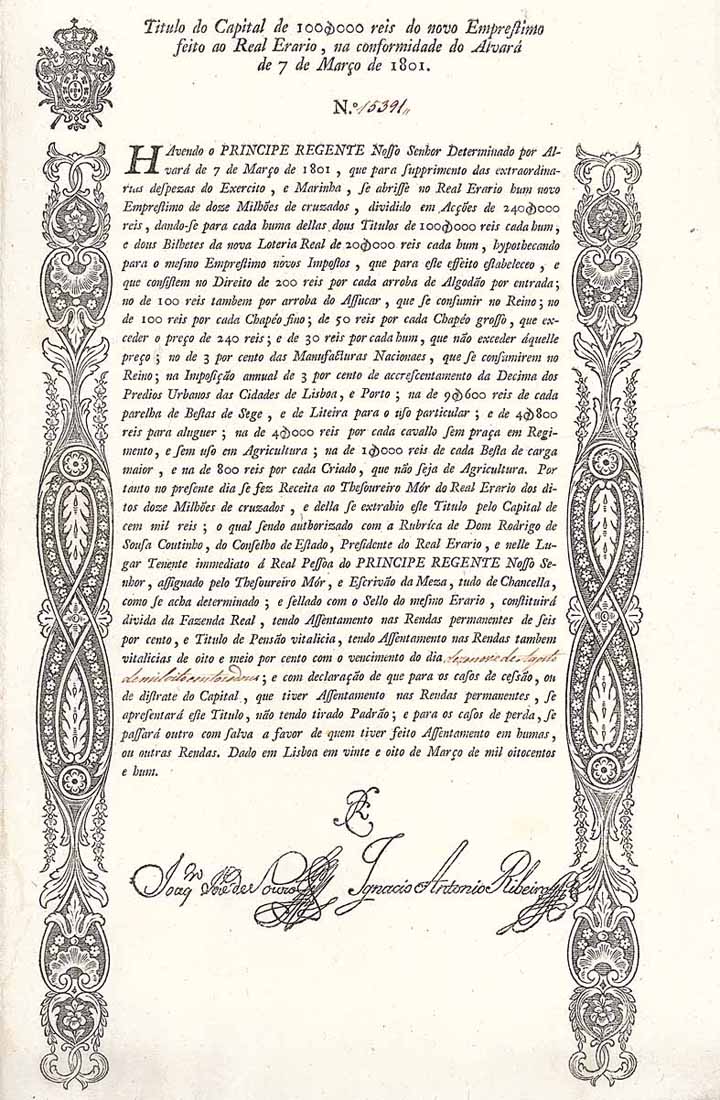 Titulo do Capital de 100$000 reis do novo Emprestimo
feito ao Real Erario, na conformidade do Alvará
de 7 de Março de 1801.
N.º 15391
HAvendo o PRINCIPE REGENTE Nosso Senhor Determinado por Al-
vará de 7 de Março de 1801, que para supprimento das extraordina-
rias despezas do Exercito, e Marinha, se abrisse no Real Erario hum novo
Emprestimo de doze Milhões de cruzados, dividido em Acções de 240$000
reis, dando-se para cada huma dellas dous Titulos de 100$000 reis cada hum,
e dous Bilhetes da nova Loteria Real de 20$000 reis cada hum, hypothecando
para o mesmo Emprestimo novos Impostos, que para este effeito estabeleceo, e
que consistem no Direito de 200 reis por cada arroba de Algodão por entrada;
no de 100 reis tambem por arroba do Assucar, que se consumir no Reino; no
de 100 reis por cada Chapéo fino; de 50 reis por cada Chapéo grosso, que ex-
ceder o preço de 240 reis; e de 30 reis por cada hum, que não exceder áquelle
preço; no de 3 por cento das Manufacturas Nacionaes, que se consumirem no
Reino; na Imposição annual de 3 por cento de accrescentamento da Decima dos
Predios Urbanos das Cidades de Lisboa, e Porto; na de 9$600 reis de cada
parelha de Bestas de Sege, e de Liteira para o uso particular; e de 4$800
reis para aluguer; na de 4$000 reis por cada cavallo sem praça em Regi-
mento, e sem uso em Agricultura; na de 1$000 reis de cada Besta de carga
maior, e na de 800 reis por cada Criado, que não seja de Agricultura. Por
tanto no presente dia se fez Receita ao Thesoureiro Mór do Real Erario dos di-
tos doze Milhões de cruzados, e della se extrahio este Titulo pelo Capital de
cem mil reis; o qual sendo authorizado com a Rubríca de Dom Rodrigo de
Sousa Coutinho, do Conselho de Estado, Presidente do Real Erario, e nelle Lu-
gar Tenente immediato á Real Pessoa do PRINCIPE REGENTE Nosso Se-
nhor, assignado pelo Thesoureiro Mór, e Escrivão da Meza, tudo de Chancella,
como se acha determinado; e sellado com o Sello do mesmo Erario, constituirá
divida da Fazenda Real, tendo Assentamento nas Rendas permanentes de seis
por cento, e Titulo de Pensão vitalicia, tendo Assentamento nas Rendas tambem
vitalicias de oito e meio por cento com o vencimento do dia dezanove de Agosto
de mil oito centos e dous; e com declaração de que para os casos de cessão, ou
de distrate do Capital, que tiver Assentamento nas Rendas permanentes, se
apresentará este Titulo, não tendo tirado Padrão; e para os casos de perda, se
passará outro com salva a favor de quem tiver feito Assentamento em humas,
ou outras Rendas. Dado em Lisboa em vinte e oito de Março de mil oitocentos
e hum.
Joaqm José de Souza Ignacio Antonio Ribeiro